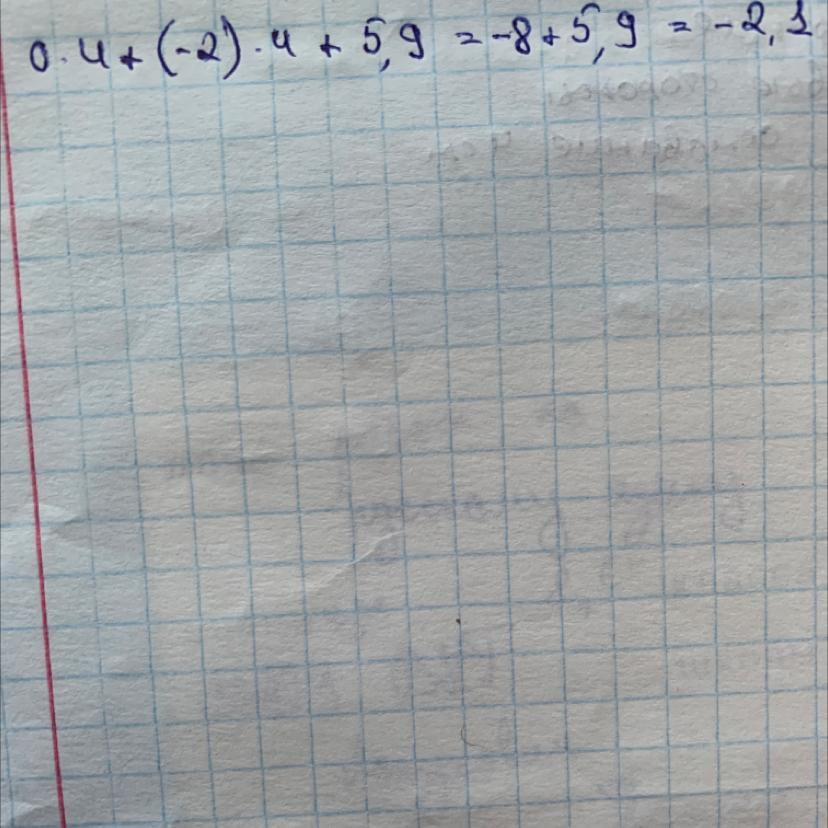 0·4+(-2)·4+5,9=-8+5,9=-2,1